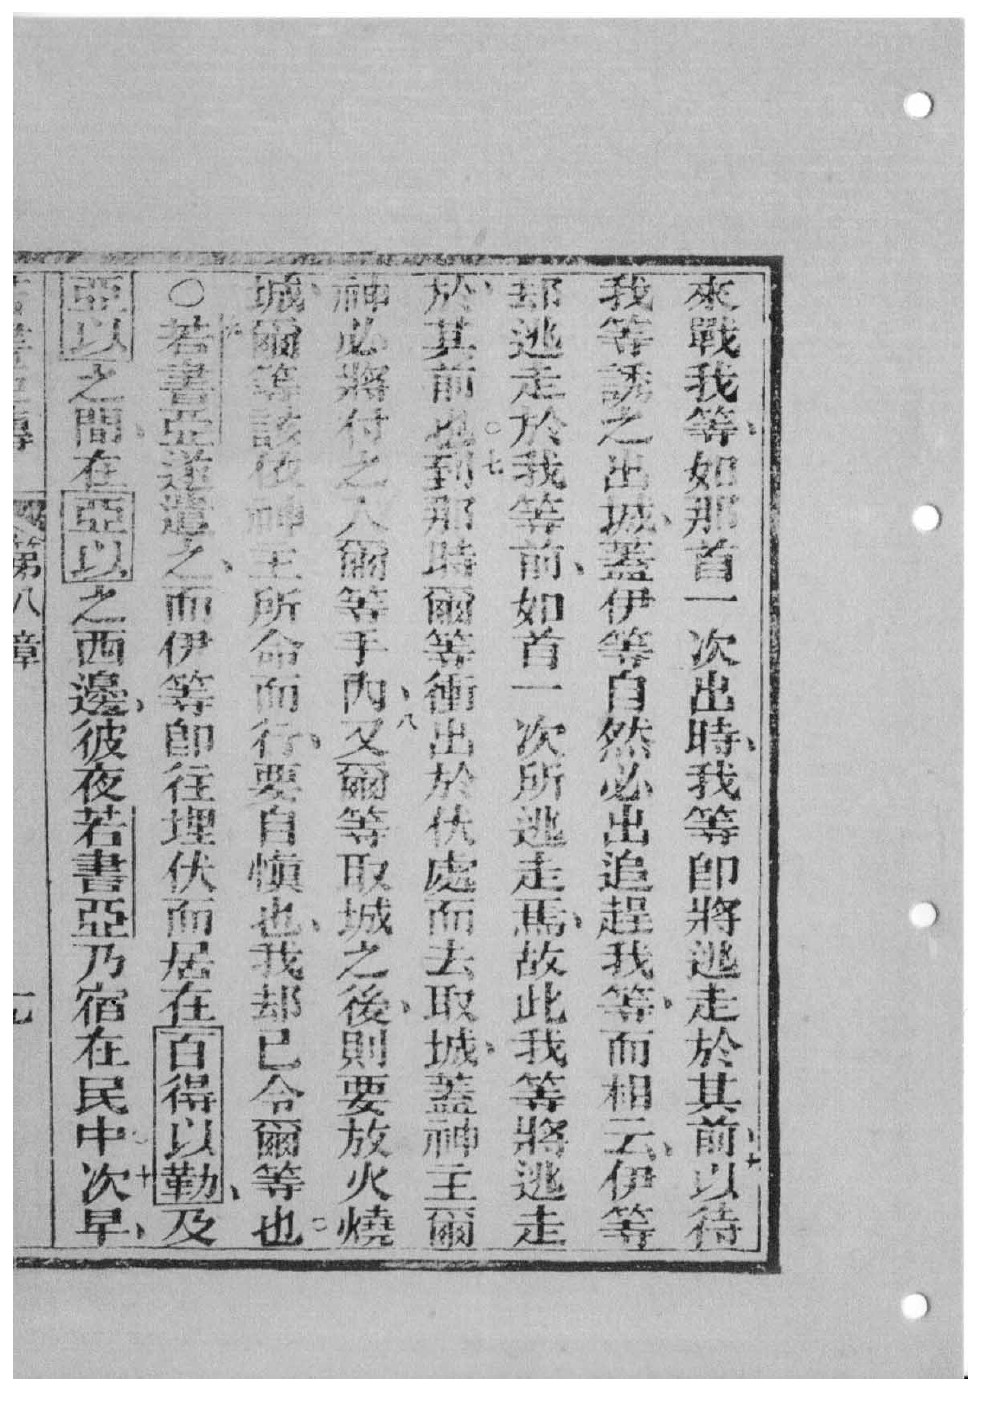 來戰我等、如那首一次出時、我等卽將逃走於其前、以待
我等誘之出城、蓋伊等自然必出追趕我等、而相云、伊等
却逃走於我等前、如首一次所逃走焉、故此我等將逃走
於其前也○七到那時爾等衝出於伏處而去取城、蓋神主爾
神必將付之入爾等手內、八又爾等取城之後、則要放火燒
城、爾等該依神主所命而行、要自慎也、我却已令爾等也○
○九若書亞遂遣之、而伊等卽往埋伏而居在百得以勤、及
亞以之間、在亞以之西邊、彼夜若書亞乃宿在民中○十次早、
第八章
七